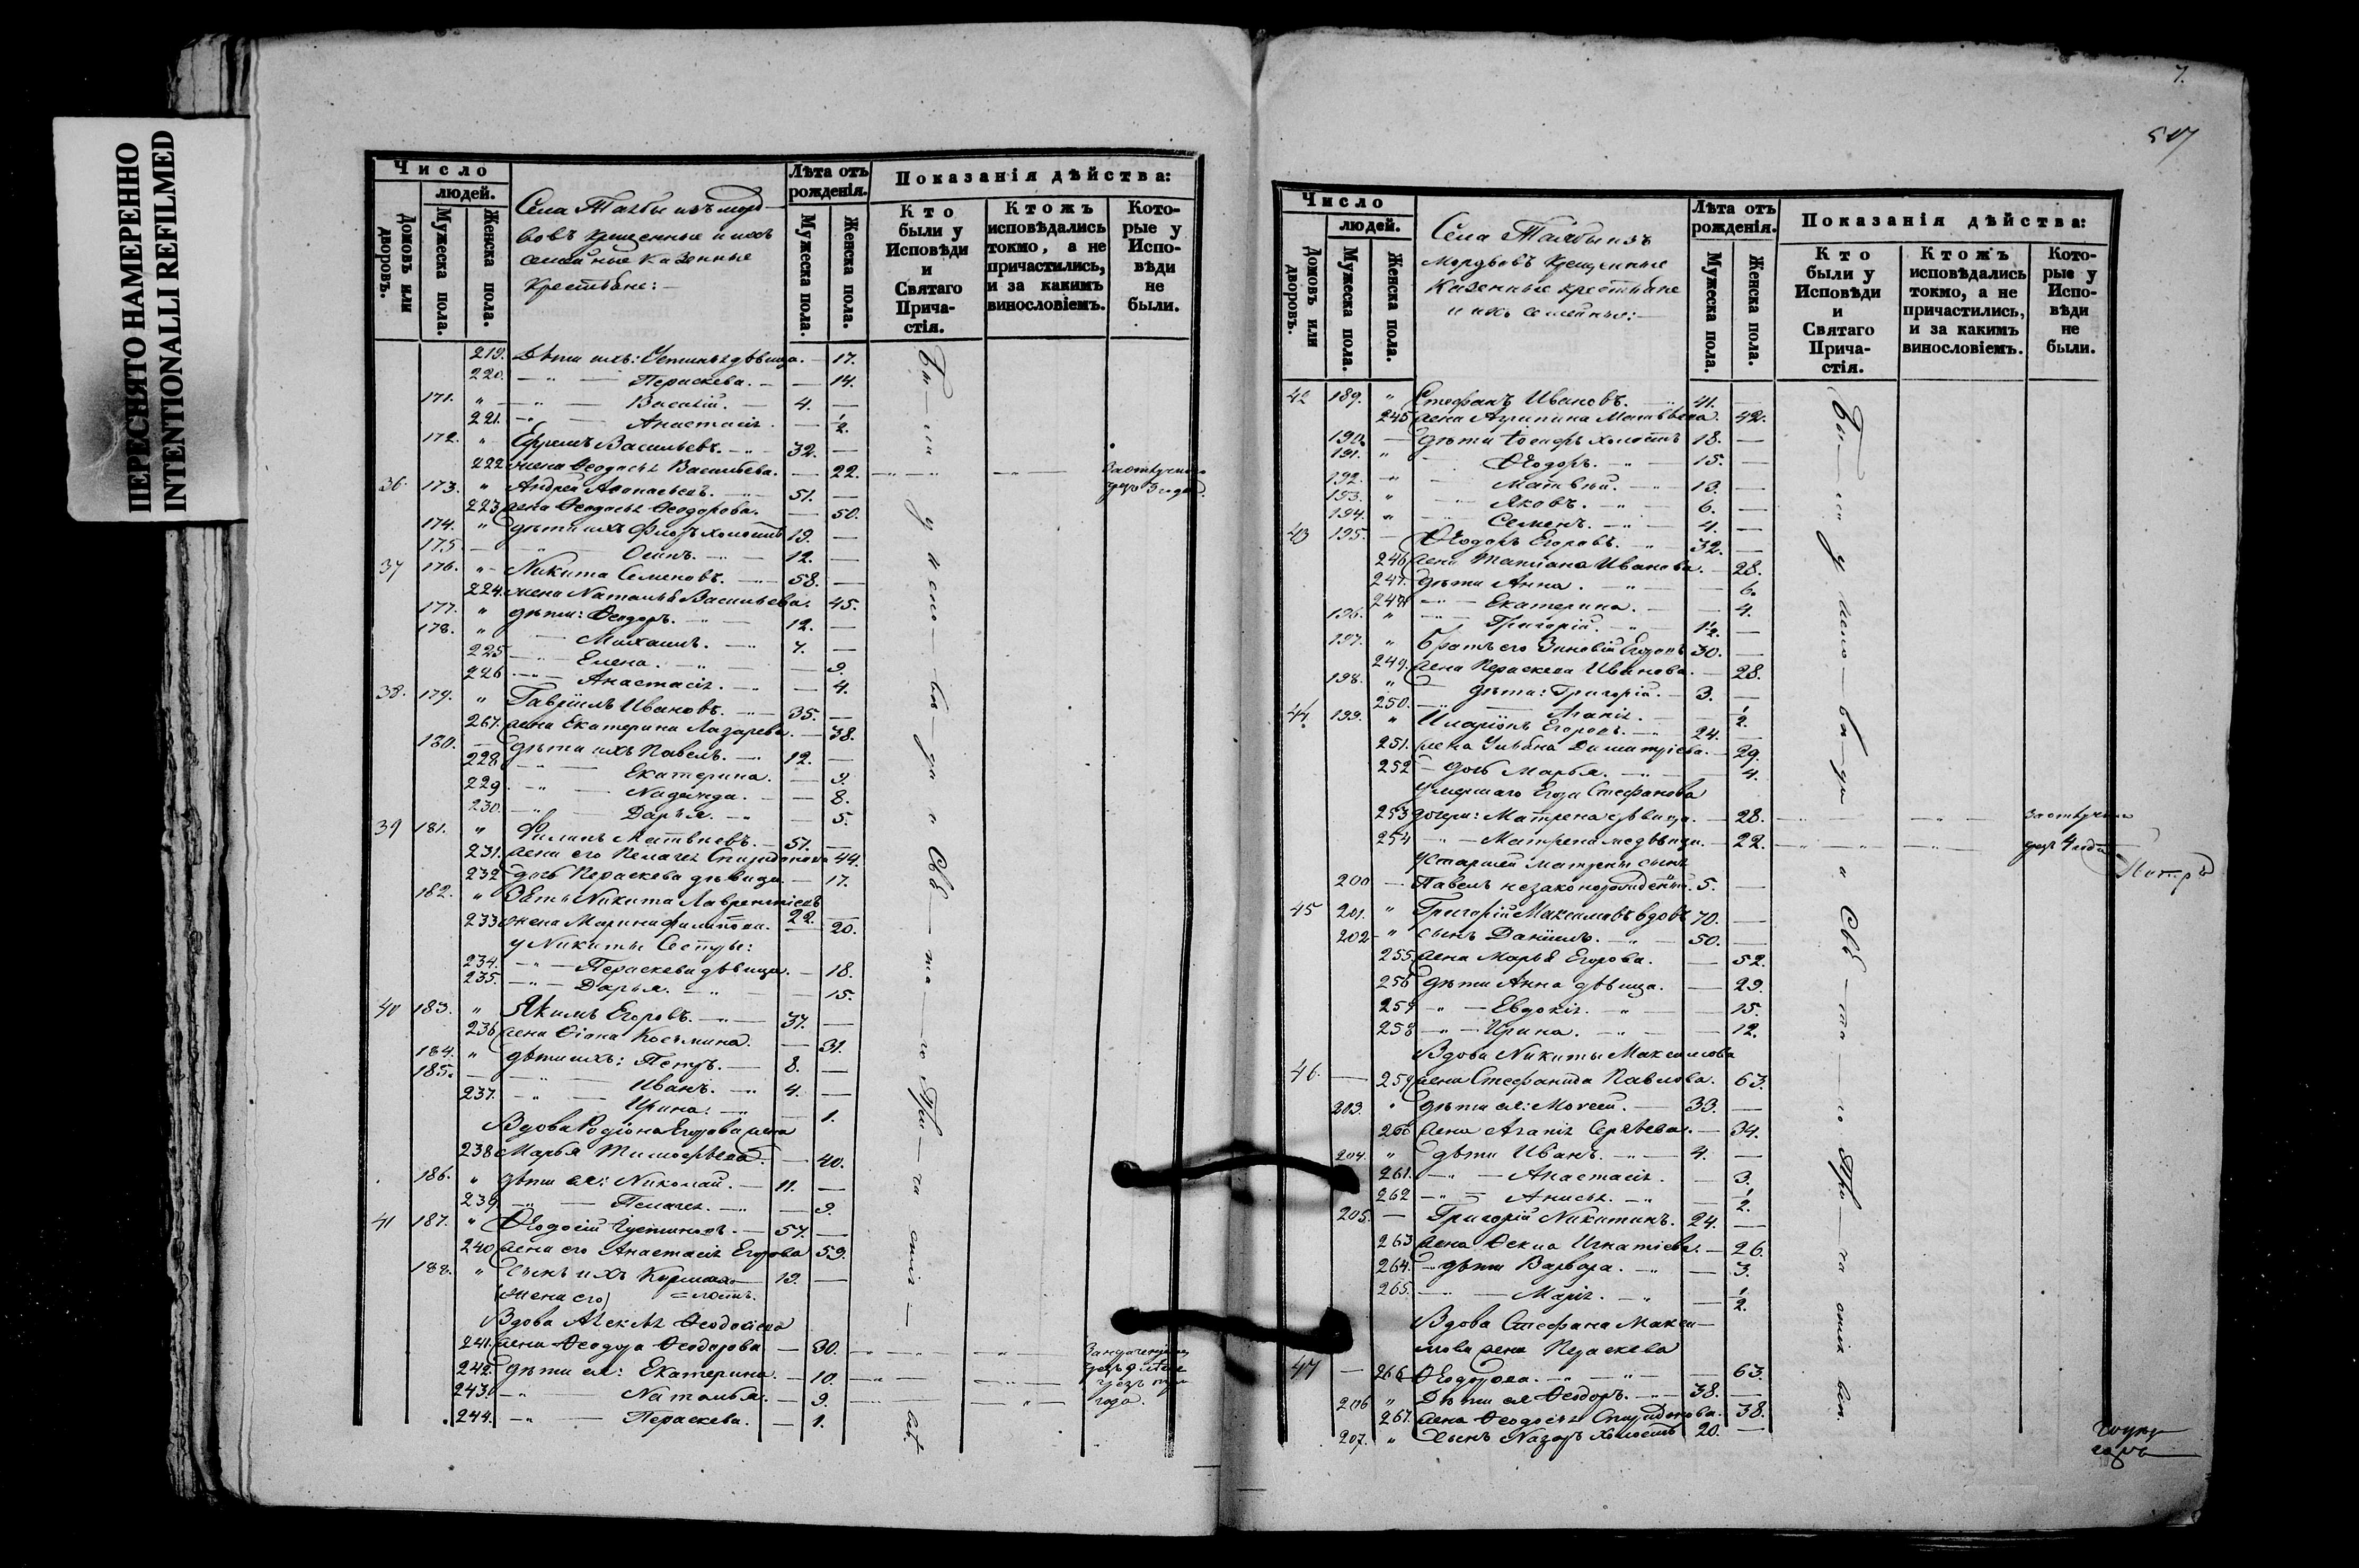 ПЕРЕСНЯТО НАМЕРЕННО
INTENTIONALLI REFILMED
Число
людей.
Домовъ или дворовъ.
Мужеска пола.
Женска пола.
Села
изъ морд-
вовъ крещенные и ихъ
семейные казенные
крестьяне:-
Лѣта отъ рожденія.
Мужеска пола.
Женска пола.
Показанія дѣйства:
Кто были у Исповѣди и Святаго Прича-стія.
Ктожъ исповѣдались токмо, а не причастились, и за какимъ винословіемъ.
Кото-рые у Испо-вѣди не были.
219. Дѣти ихъ: дѣвица. — 17.
220. — " — Параскева. — — 14.
171. " — " — Василій. — 4. —
221. — " — Анастасія. — 1/2.
172. " Ефремъ Васильевъ. — 32. —
222 жена Ѳеодосья Васильева. — 22.
36 173. " Андрей Аѳанасьевъ. 51. —
223 жена Ѳеодосья Ѳеодорова. — 50.
174. " дѣти ихъ Флоръ холостъ 19. —
175. — " Осипъ. — 12. —
37 176. " Никита Семеновъ. — 58. —
224. жена Наталья Васильева. 45.
177. " дѣти: Ѳеодоръ. — 12. —
178. " — Михаилъ. — 7. —
225 — Елена. — " — 9.
226 — " — Анастасія. — " — 4.
38. 179. " Гавріилъ Ивановъ. — 35. —
267. жена Екатерина Лазарева. — 38.
180. — дѣти ихъ Павелъ. — 12. —
228 — " — Екатерина. — 9.
229 — " — Надежда. — 8.
230. — " — Дарья. — 5.
39 181. " Филипъ Матвѣевъ. — 51. —
231. жена его Пелагея Спиридонова 44.
232 дочь Параскева дѣвица. — 17.
182. " Зять Никита Лаврентіевъ 22. —
233 жена Марина Филипова. — 20.
у Никиты Сестры:
234. — " — Параскева дѣвица. — 18.
235. — " — Дарья. — " — 15.
40 183. " Якимъ Егоровъ. — " — 37. —
236 жена Козьмина. — 31.
184. " дѣти ихъ: Петръ. — 8. —
185. — " — Иванъ. — 4. —
237. — " — Ирина. — — 1.
Вдова Родіона Егорова жена
238 Марья Тимофѣева. — 40.
186. " дѣти ея: Николай. — 11. —
239 — " — Пелагея. — — 9.
41 187. " Ѳеодосій — 57. —
240 жена его Анастасія Егорова 59.
188. " сынъ ихъ — 19. —
(жена его)
Вдова Ѳеодосіева
241. жена Ѳеодора Ѳеодорова — 30.
242. дѣти ея: Екатерина. — 10.
243. — " — Наталья. — 9.
года.
244. — " — Параскева. — 1.
Бы — ли у испо — вѣ — ди и Свѣ — та — го При — ча стія —
7.
517
Число
людей.
Домовъ или дворовъ.
Мужеска пола.
Женска пола.
Села
изъ
Мордвовъ крещенные
казенные крестьяне
и ихъ семейные:-
Лѣта отъ рожденія.
Мужеска пола.
Женска пола.
Показанія дѣйства:
Кто были у Исповѣди и Святаго Прича-стія.
Ктожъ исповѣдались токмо, а не причастились, и за какимъ винословіемъ.
Кото-рые у Испо-вѣди не были.
42 189. " Стефанъ Ивановъ. — 41. —
245 жена Агрипина Матвѣева. 42.
190. — дѣти Іосифъ холостъ 18. —
191. " — Ѳеодоръ. — " — 15. —
192. — Матвѣй. — 13. —
193. " — Яковъ. — " — 6. —
194. " — Семенъ. — " — 4. —
43 195. — Ѳеодоръ Егоровъ. — " 32. —
246 жена Татіана Иванова. — 28.
247. дѣти Анна. " — 6.
248 — " — Екатерина. — — 4.
196. " — " — Григорій. — 1/2. —
197. " Братъ его Зиновій Егоровъ 30. —
249. жена Параскева Иванова. — 28.
198. " — дѣти: Григорій. — 3. —
250. — Агапія. — 1/2.
44 199. " Иларіонъ Егоровъ. — 24. —
251. жена Ульяна Димитріева. — 29.
252 — дочь Марья. — " — 4.
Умершаго Егора Стефанова
253 дочери: Матрена дѣвица. — 28.
254 — " — Матрена дѣвица. — 22.
У старшей Матрены сынъ
200 — Павелъ незаконорожденный. 5. —
45 201. " Григорій Максимовъ вдовъ 70. —
202 — " сынъ Даніилъ. — " — 50. —
255. жена Марья Егорова. — 52.
256 дѣти Анна дѣвица. — 29.
257 — " — Евдокія. — " — 15.
258 — " — Ирина. — " — 12.
Вдова Никиты Максимова
46. — 259 жена Стефанида Павлова. 63.
203. " дѣти ея: Моѵсей. — 33. —
260 жена Агапія Сергѣева. — 34.
204. " дѣти Иванъ. — " — 4. —
261. — " — Анастасія. — 3.
262 — " — Анисья. — " — 1/2.
205. — Григорій Никитинъ. 24. —
263 жена Ѳекла Игнатіева. — 26.
264. — дѣти Варвара. — " — 3.
265. — " — Марія. — " — 1/2.
Вдова Стефана Макси-
мова жена Параскева
47 — 266 Ѳеодорова. — " — " — 63.
206 " Дѣти ея Ѳеодоръ. — " — 38. —
267. жена Ѳеодосья Спиридонова. 38.
207. " Сынъ Назаръ холостъ 20. —
Бы — ли у испо — вѣ — ди и Свѣ — та — го При — ча стія